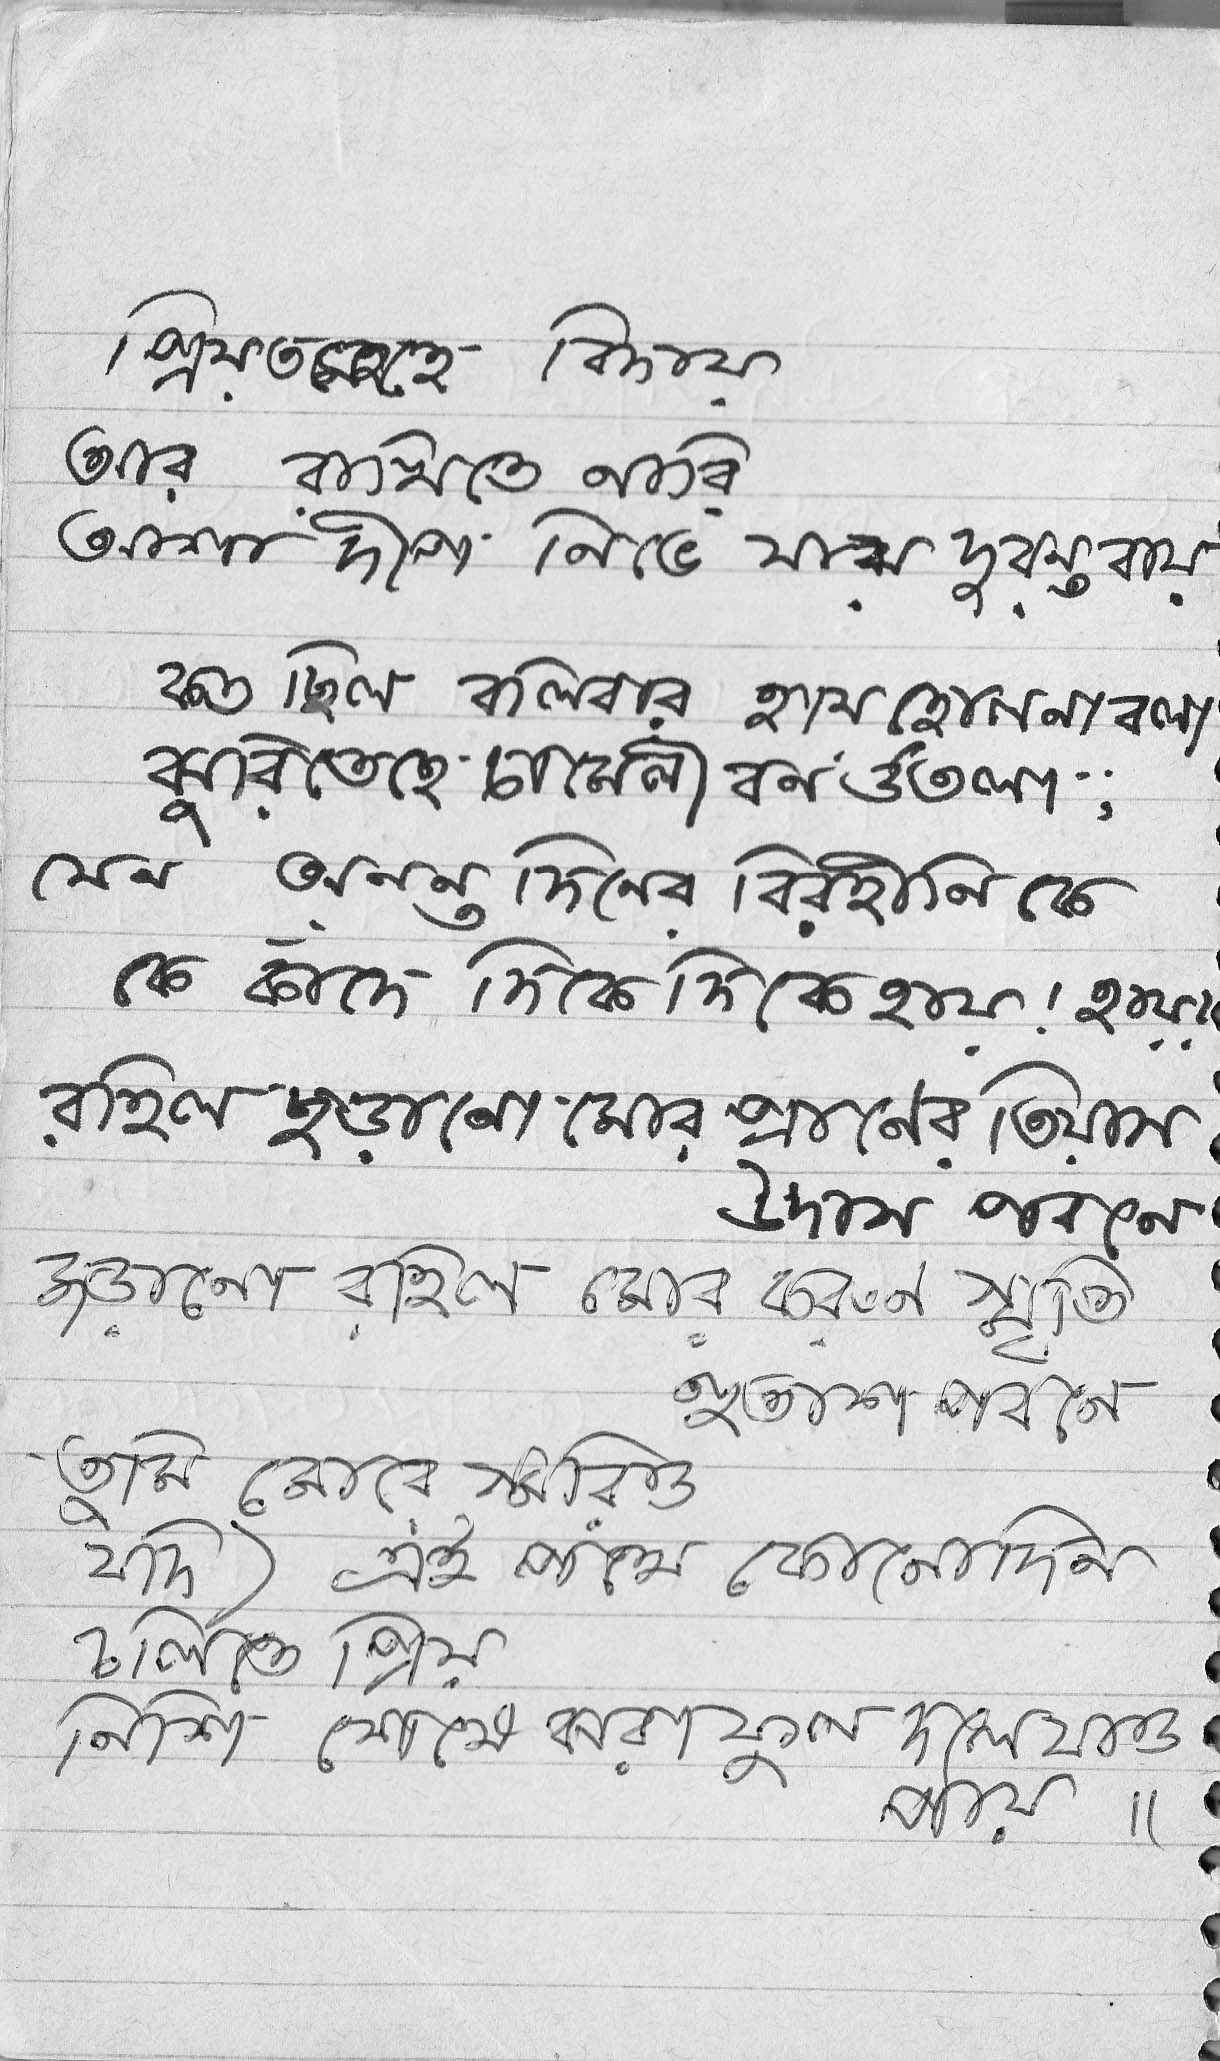 প্রিয়তম হে বিদায়
আর রাখিতে নারি
আশা দীপ নিভে যায় দুরন্ত বায়
কত ছিল বলিবার হায় হোলনা বলা
ঝুরিতেছে চামেলী বন তলা;
যেন অনন্ত দিনের বিরহীনি কে
কে কাঁদে দিকে দিকে হায়! হায়!
রহিল ছড়ানো মোর প্রাণের তিয়াস
উদাস পবনে
জড়ানো রহিল মোর করুণ স্মৃতি
হুতাশ পবনে
তুমি মোরে স্মরিও
যদি) এই পথে কোনোদিন
চলিতে প্রিয়
নিশি ভোরে ঝরা ফুল দলে যাও
পায় ॥